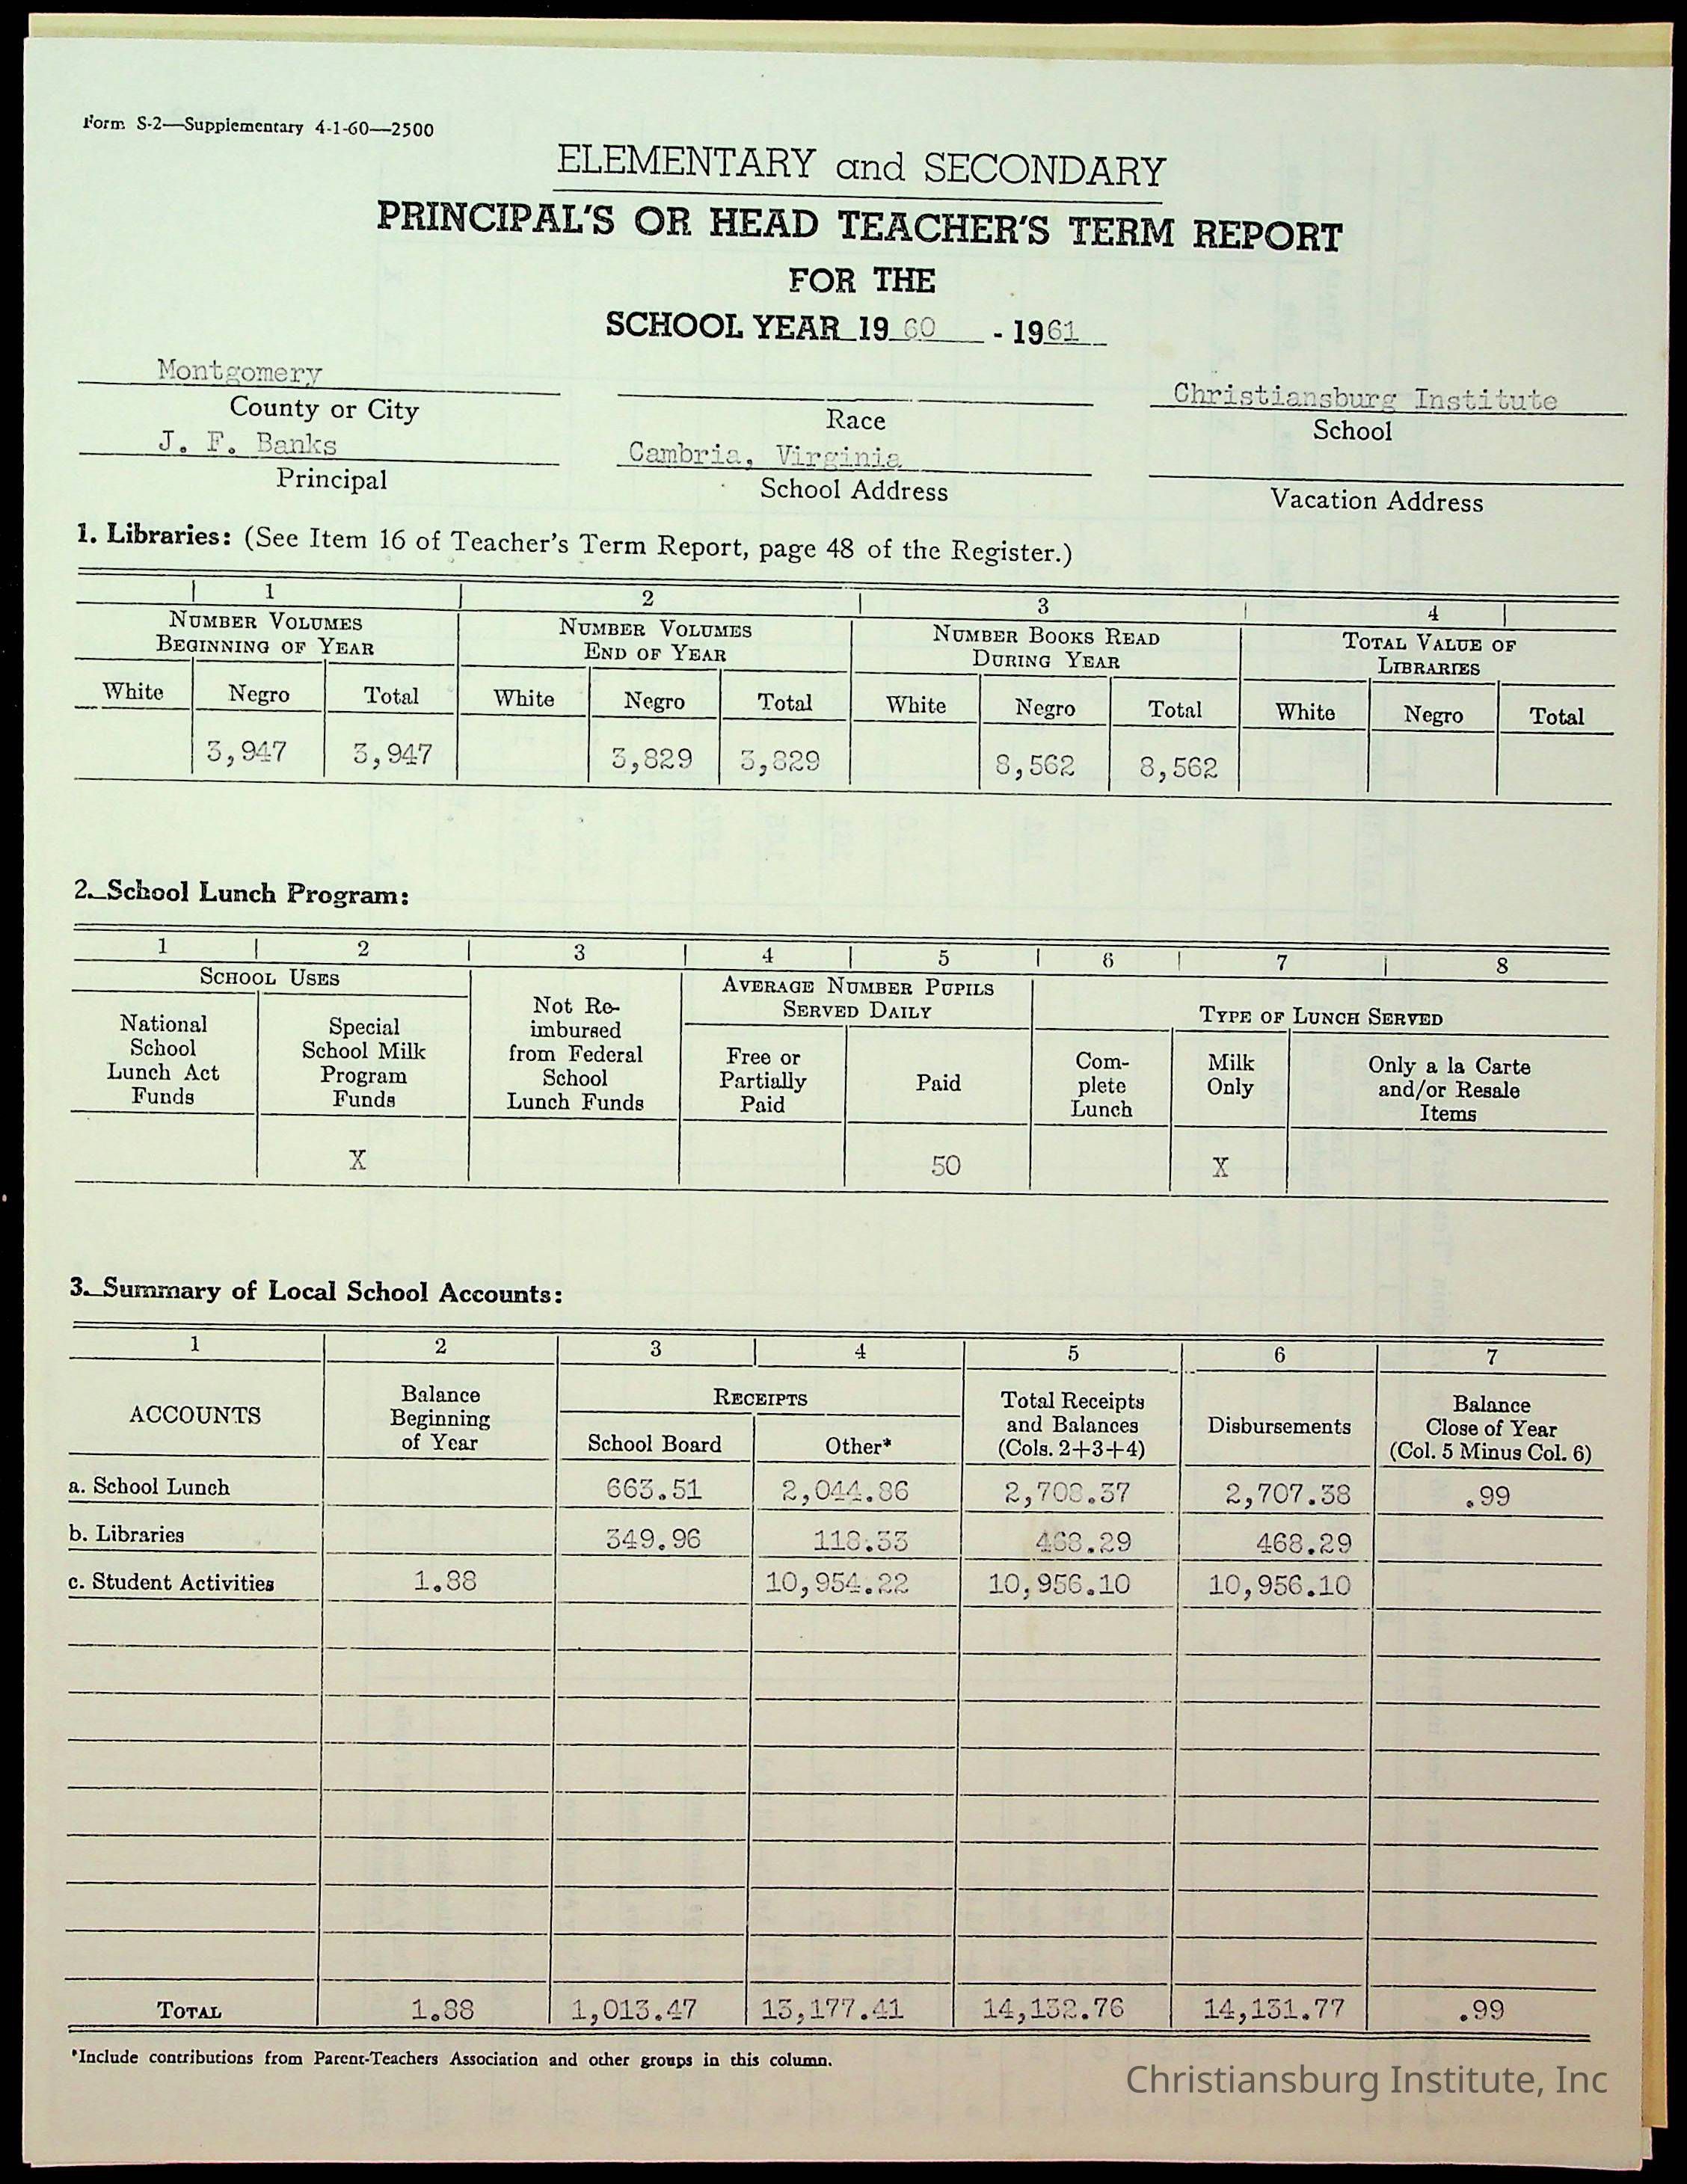 Form S-2—Supplementary 4-1-60—2500
ELEMENTARY and SECONDARY
PRINCIPAL'S OR HEAD TEACHER'S TERM REPORT
FOR THE
SCHOOL YEAR 1960 - 1961
Montgomery Christiansburg Institute
County or City Race School
J. F. Banks Cambria, Virginia
Principal School Address Vacation Address
1. Libraries: (See Item 16 of Teacher's Term Report, page 48 of the Register.)
1 2 3 4
NUMBER VOLUMES BEGINNING OF YEAR NUMBER VOLUMES END OF YEAR NUMBER BOOKS READ DURING YEAR TOTAL VALUE OF LIBRARIES
White Negro Total White Negro Total White Negro Total White Negro Total
3,947 3,947 3,829 3,829 8,562 8,562
2. School Lunch Program:
1 2 3 4 5 6 7 8
SCHOOL USES AVERAGE NUMBER PUPILS SERVED DAILY TYPE OF LUNCH SERVED
National School Lunch Act Funds Special School Milk Program Funds Not Re-imbursed from Federal School Lunch Funds Free or Partially Paid Paid Com-plete Lunch Milk Only Only a la Carte and/or Resale Items
X 50 X
3. Summary of Local School Accounts:
1 2 3 4 5 6 7
ACCOUNTS Balance Beginning of Year RECEIPTS Total Receipts and Balances (Cols. 2+3+4) Disbursements Balance Close of Year (Col. 5 Minus Col. 6)
School Board Other*
a. School Lunch 663.51 2,044.86 2,708.37 2,707.38 .99
b. Libraries 349.96 118.33 468.29 468.29
c. Student Activities 1.88 10,954.22 10,956.10 10,956.10
TOTAL 1.88 1,013.47 13,177.41 14,132.76 14,131.77 .99
*Include contributions from Parent-Teachers Association and other groups in this column.
Christiansburg Institute, Inc